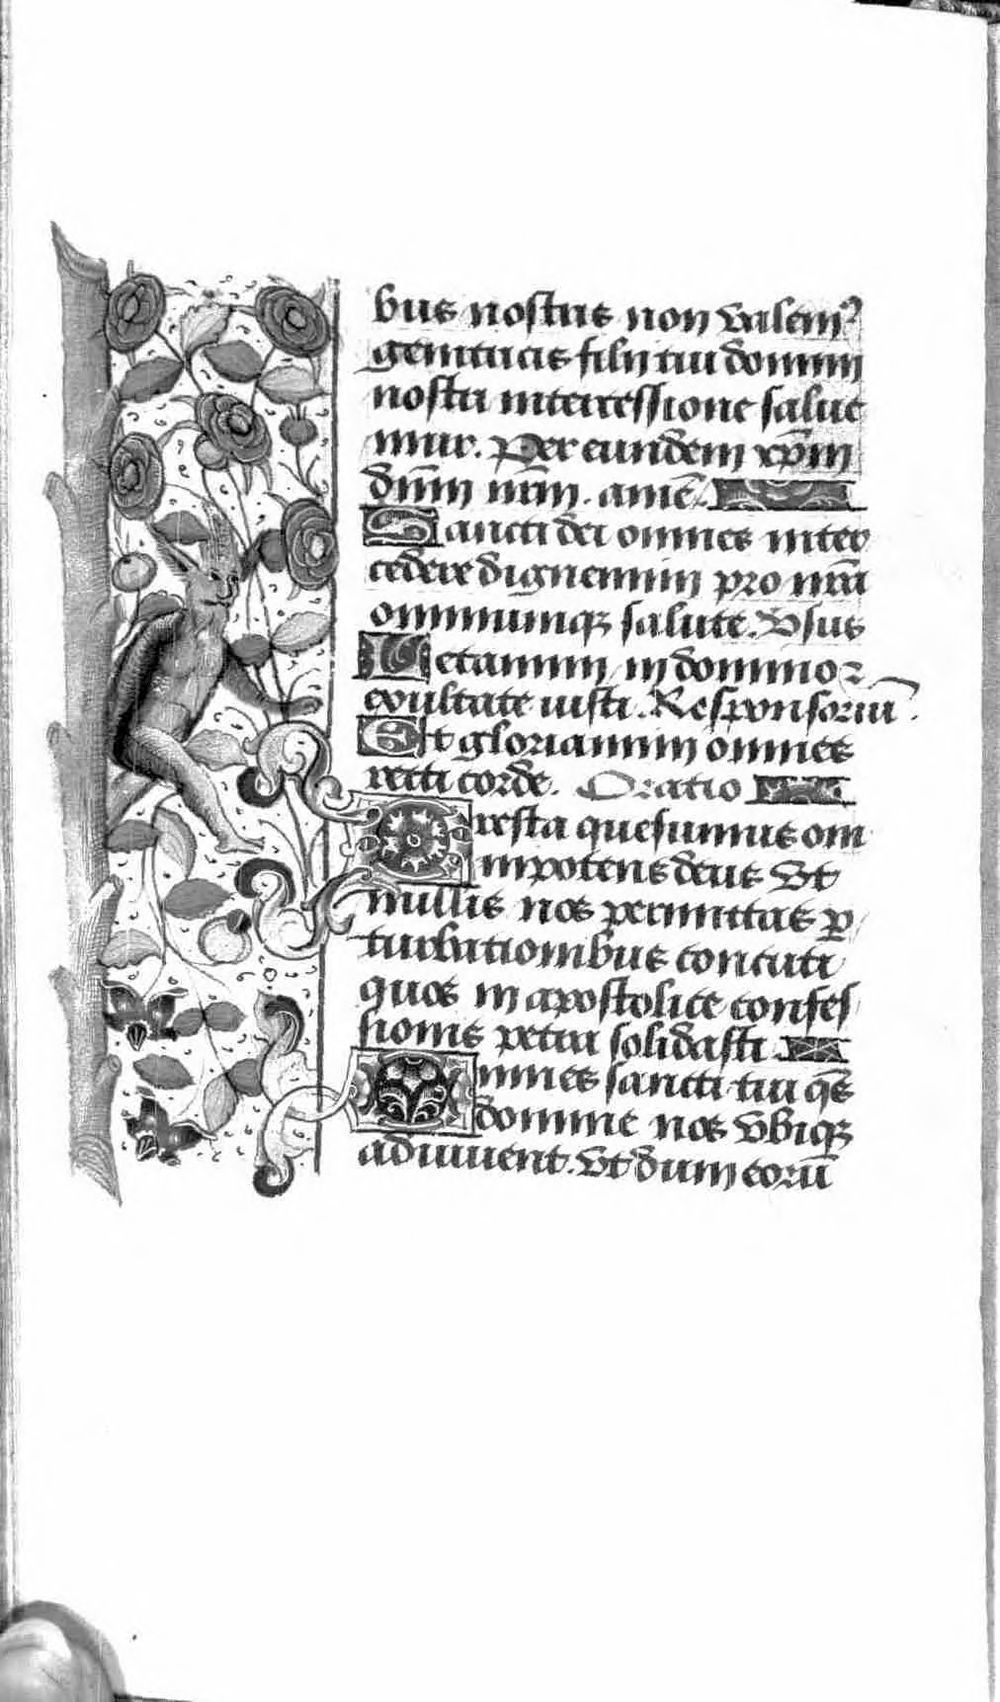 bus nostris non valem⁹
genitricis filii tui domini
nostri intercessione salue
mur. Per eundem xp̄m
dn̄m nr̄m. amē.
Sancti dei omnes inter
cedere dignemini pro nr̄a
omniumqꝫ salute. Vsus
Letamini in domino ⁊
exultate iusti. Responsoriū.
Et gloriamini omnes
recti corde. Oratio
Presta quesumus om
nipotens deus Vt
nullis nos permittas ꝑ
turbationibus concuti
quos in apostolice confes
sionis petra solidasti
Omnes sancti tui qs̄
domine nos vbiqꝫ
adiuuent. Vt dum eorū